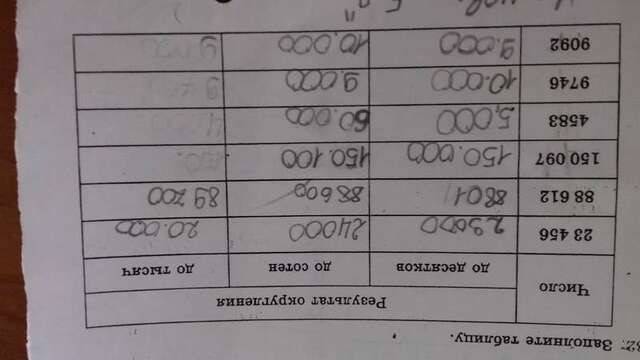 82. Заполните таблицу.
Число
Результат округления
до десятков до сотен до тысяч
23 456 23000 24000 20.000
88 612 8801 88600 89200
150 097 150.000 150.100
4583 5,000 60.000
9746 10.000 9.000
9092 9.000 10.000